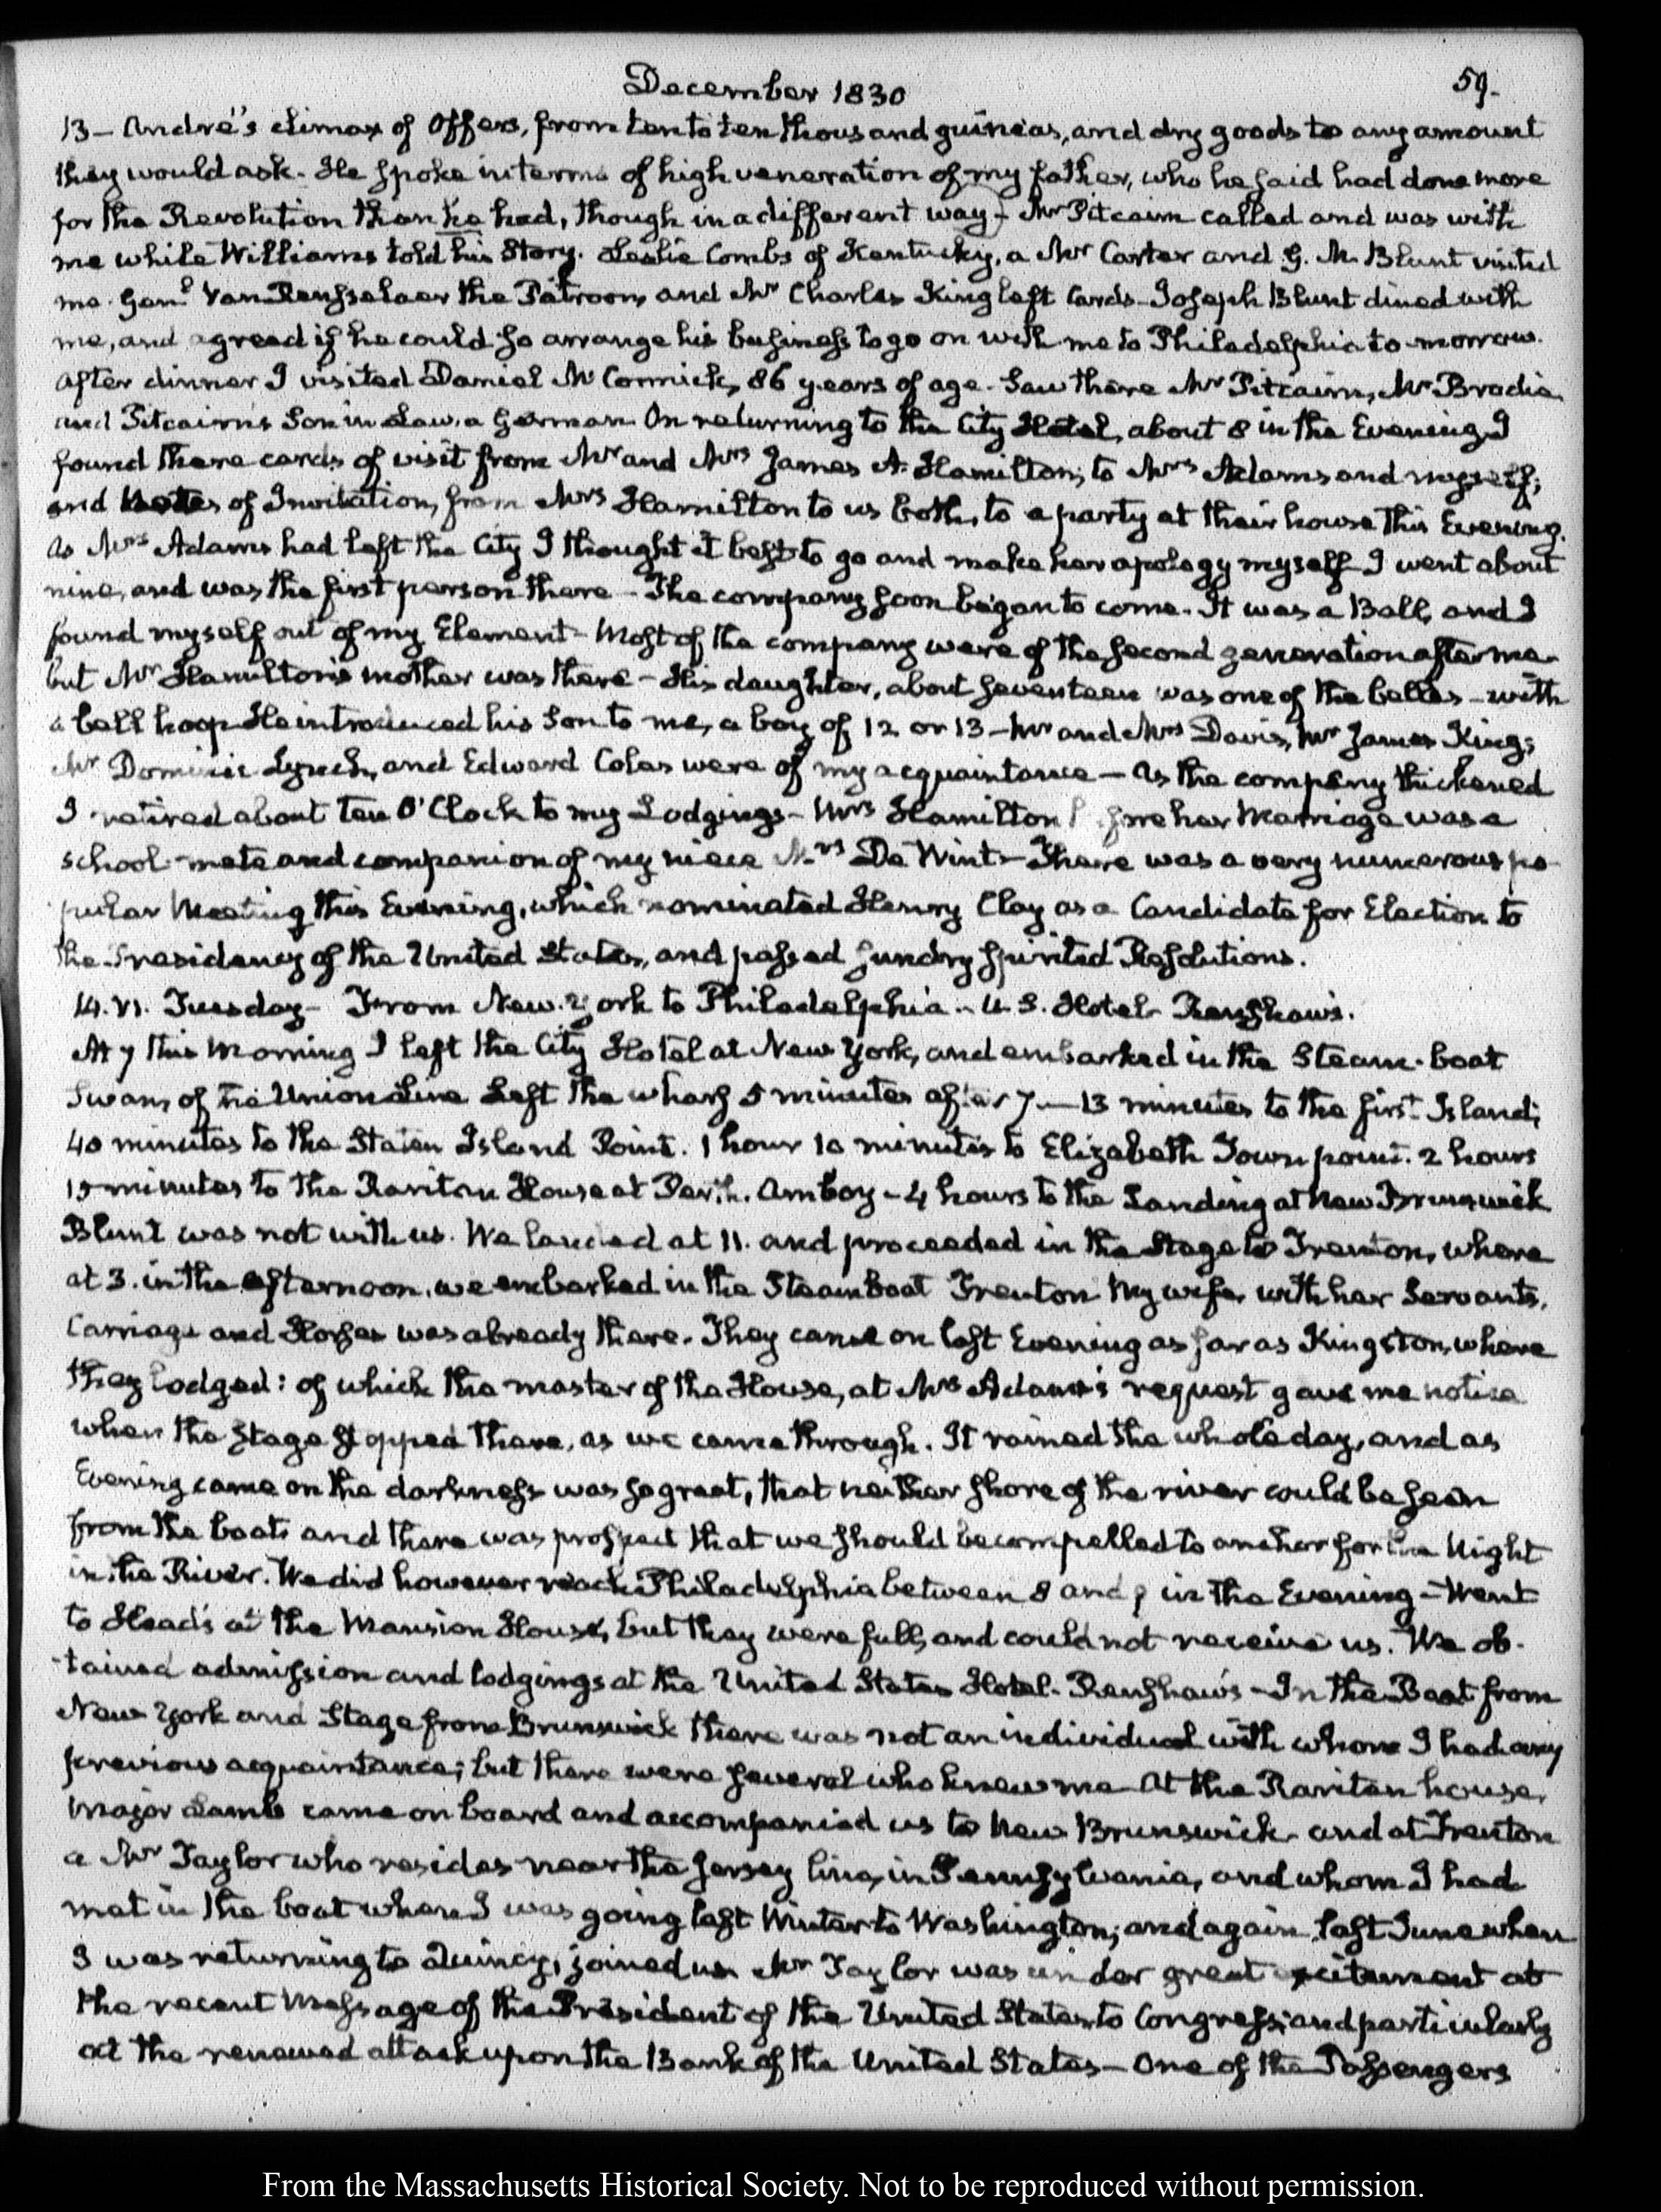 December 1830
59.
13 – André's climax of Offers, from ten to ten thousand guineas, and dry goods to any amount
they would ask. He spoke in terms of high veneration of my father, who he said had done more
for the Revolution than he had, though in a different way – Mr Pitcairn called and was with
me while Williams told his Story. Leslie Combs of Kentucky, a Mr Carter and G. M. Blunt visited
me. Genl Van Rensselaer the Patroon, and Mr Charles King left Cards – Joseph Blunt dined with
me, and agreed if he could so arrange his business to go on with me to Philadelphia to-morrow.
After dinner I visited Daniel McCormick, 86 years of age. Saw there Mr Pitcairn, Mr Brodie
and Pitcairn's Son in Law, a German. On returning to the City Hotel, about 8 in the Evening I
found there cards of visit from Mr and Mrs James A. Hamilton, to Mrs Adams and myself;
and Notes of Invitation, from Mrs Hamilton to us both, to a party at their house this Evening.
As Mrs Adams had left the City I thought it best to go and make her apology myself – I went about
nine, and was the first person there – The company soon began to come. It was a Ball, and I
found myself out of my Element – Most of the company were of the second generation after me
but Mr Hamilton's mother was there – His daughter, about seventeen was one of the belles – with
a bell hoop. He introduced his Son to me, a boy of 12 or 13 – Mr and Mrs Davis, Mr James King,
Mr Dominic Lynch, and Edward Coles were of my acquaintance – As the company thickened
I retired about ten O'Clock to my Lodgings – Mrs Hamilton before her Marriage was a
school-mate and companion of my niece Mrs De Wint – There was a very numerous po-
pular Meeting this Evening, which nominated Henry Clay as a Candidate for Election to
the Presidency of the United States, and passed sundry spirited Resolutions.
14. VI. Tuesday – From New-York to Philadelphia – U.S. Hotel – Renshaw's.
At 7 this Morning I left the City Hotel at New York, and embarked in the Steam-boat
Swan, of the Union Line Left the wharf 5 minutes after 7 – 13 minutes to the first Island;
40 minutes to the Staten Island Point. 1 hour 10 minutes to Elizabeth Town point. 2 hours
15 minutes to the Raritan House at Perth Amboy – 4 hours to the Landing at New Brunswick
Blunt was not with us. We landed at 11. and proceeded in the Stage to Trenton, where
at 3. in the afternoon, we embarked in the Steamboat Trenton My wife, with her Servants,
Carriage and Horses was already there. They came on last Evening as far as Kingston, where
they lodged: of which the master of the House, at Mrs Adams's request gave me notice
when the Stage stopped there, as we came through. It rained the whole day, and as
Evening came on the darkness was so great, that neither shore of the river could be seen
from the boat, and there was prospect that we should be compelled to anchor for the Night
in the River. We did however reach Philadelphia between 8 and 9 in the Evening – Went
to Head's at the Mansion House, but they were full, and could not receive us. We ob-
-tained admission and lodgings at the United States Hotel – Renshaw's – In the Boat from
New York and Stage from Brunswick there was not an individual with whom I had any
previous acquaintance; but there were several who knew me – At the Raritan house,
Major Lamb came on board and accompanied us to New Brunswick – and at Trenton
a Mr Taylor who resides near the Jersey line, in Pennsylvania, and whom I had
met in the boat when I was going last Winter to Washington; and again last June when
I was returning to Quincy, joined us Mr Taylor was under great excitement at
the recent Message of the President of the United States to Congress, and particularly
at the renewed attack upon the Bank of the United States – One of the Passengers
From the Massachusetts Historical Society. Not to be reproduced without permission.